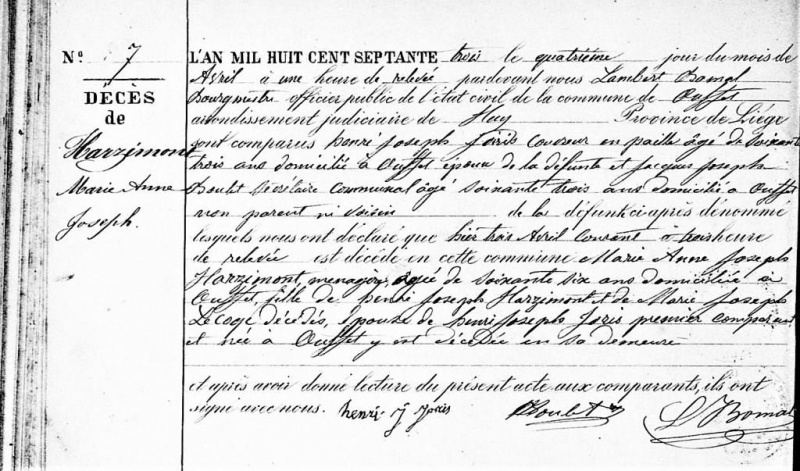 N° 7
DÉCÈS
de
Harzimont
Marie Anne
Joseph.
L'AN MIL HUIT CENT SEPTANTE trois le quatrième jour du mois de
Avril à une heure de relevée pardevant nous Lambert Bomal
Bourgmestre officier public de l'état civil de la commune de Ouffet
arrondissement judiciaire de Huy Province de Liége
sont comparus henri Joseph Joris Couvreur en paille âgé de soixante
trois ans domicilié à Ouffet époux de la défunte et Jacques Joseph
Boulet Secrétaire Communal âgé soixante trois ans domicilié à Ouffet
non parent ni voisin de la défunte ci après dénommé
lesquels nous ont déclaré que hier trois Avril courant à trois heure
de relevée est décédé en cette commune Marie Anne Joseph
Harzimont, menagère, agée de soixante six ans domiciliée à
Ouffet, fille de henri Joseph Harzimont & de Marie Joseph
décédés, épouse de henri Joseph Joris premier comparant
et née à Ouffet y est décédée en sa demeure
et après avoir donné lecture du présent acte aux comparants, ils ont
signé avec nous. henri J Joris Boulet L Bomal